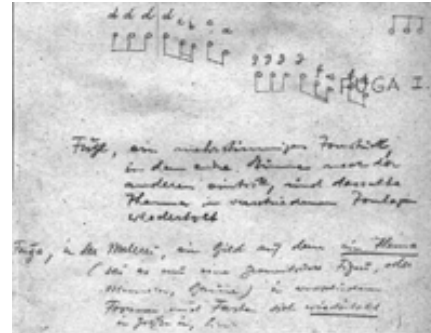 d d d d c b c a
g g g g f
FUGA I.
Fuge, ein mehrstimmiges Tonstück,
in dem eine Stimme nach der
anderen eintritt, und dasselbe
Thema in verschiedenen Tonlagen
wiederholt
Fuga, in der Malerei, ein Bild auf dem ein Thema
(sei es nur eine geometrische Figur, oder
in verschiedenen
Formen und Farben sich wiederholt
in